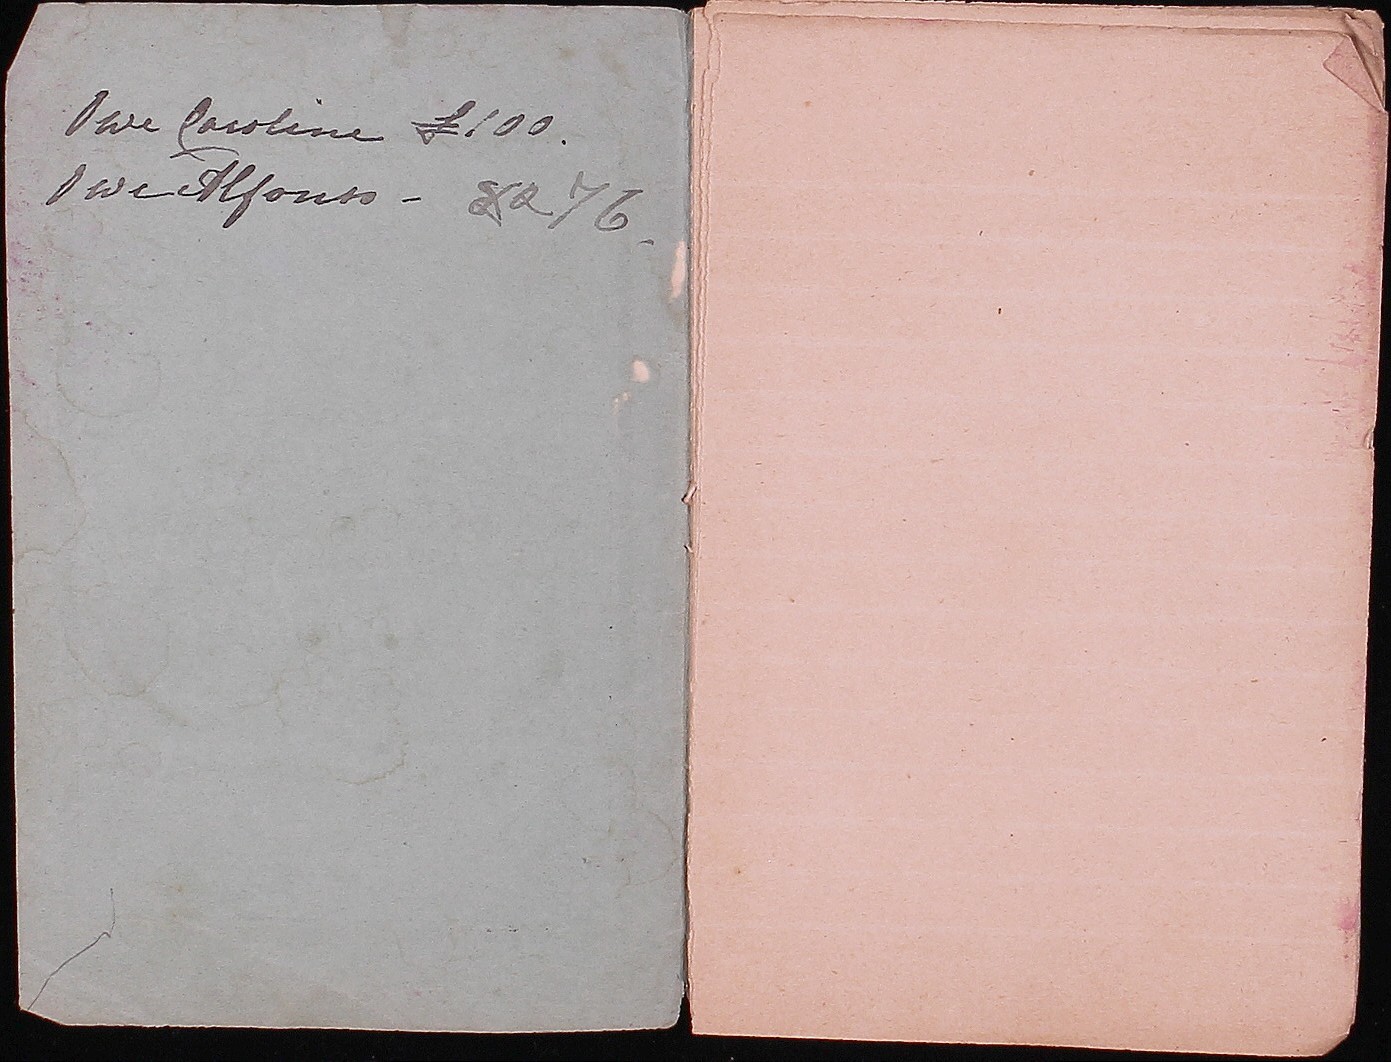 I we Caroline £100.
I we Alfonso - £276.